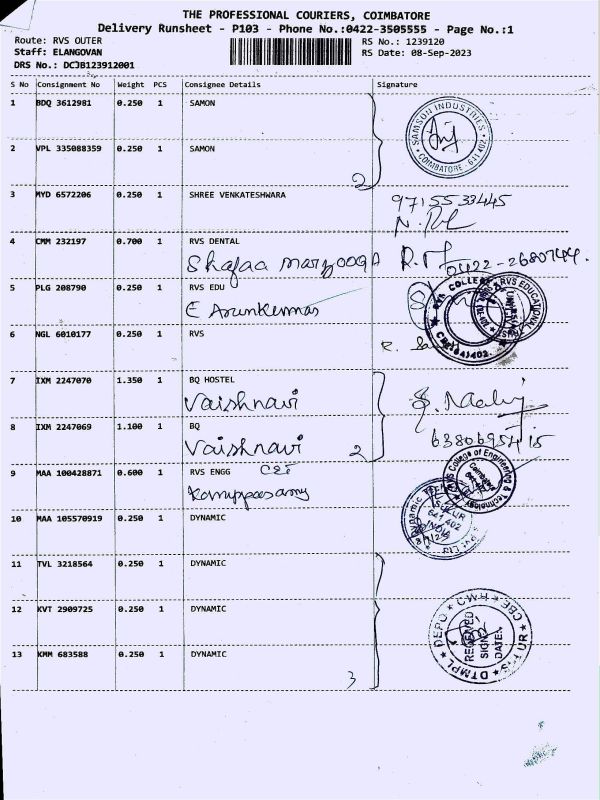 THE PROFESSIONAL COURIERS, COIMBATORE
Delivery Runsheet - P103 - Phone No.:0422-3505555 - Page No.:1
Route: RVS OUTER RS No.: 1239120
Staff: ELANGOVAN RS Date: 08-Sep-2023
DRS No.: DCJB123912001
S No Consignment No Weight PCS Consignee Details Signature
1 BDQ 3612981 0.250 1 SAMON
SAMSON INDUSTRIES
COIMBATORE - 641 402
2 VPL 335088359 0.250 1 SAMON
2
3 MYD 6572206 0.250 1 SHREE VENKATESHWARA
9715533445
4 CMM 232197 0.700 1 RVS DENTAL
Shafaa marzooqa 0422-2680744.
5 PLG 208790 0.250 1 RVS EDU
E Arunkumar
RVS COLLEGE
CBE-641402.
RVS EDUCATIONAL
6 NGL 6010177 0.250 1 RVS
7 IXM 2247070 1.350 1 BQ HOSTEL
Vaishnavi
8 IXM 2247069 1.100 1 BQ
Vaishnavi 2
9 MAA 100428871 0.600 1 RVS ENGG
Karuppasamy
RVS College of Engineering & Technology
Coimbatore
10 MAA 105570919 0.250 1 DYNAMIC
SULUR
641 402
INDIA
11 TVL 3218564 0.250 1 DYNAMIC
12 KVT 2909725 0.250 1 DYNAMIC
DTMPL DEPO HWC CBE
RECEIVED
SIGN
DATE:
13 KMM 683588 0.250 1 DYNAMIC
3